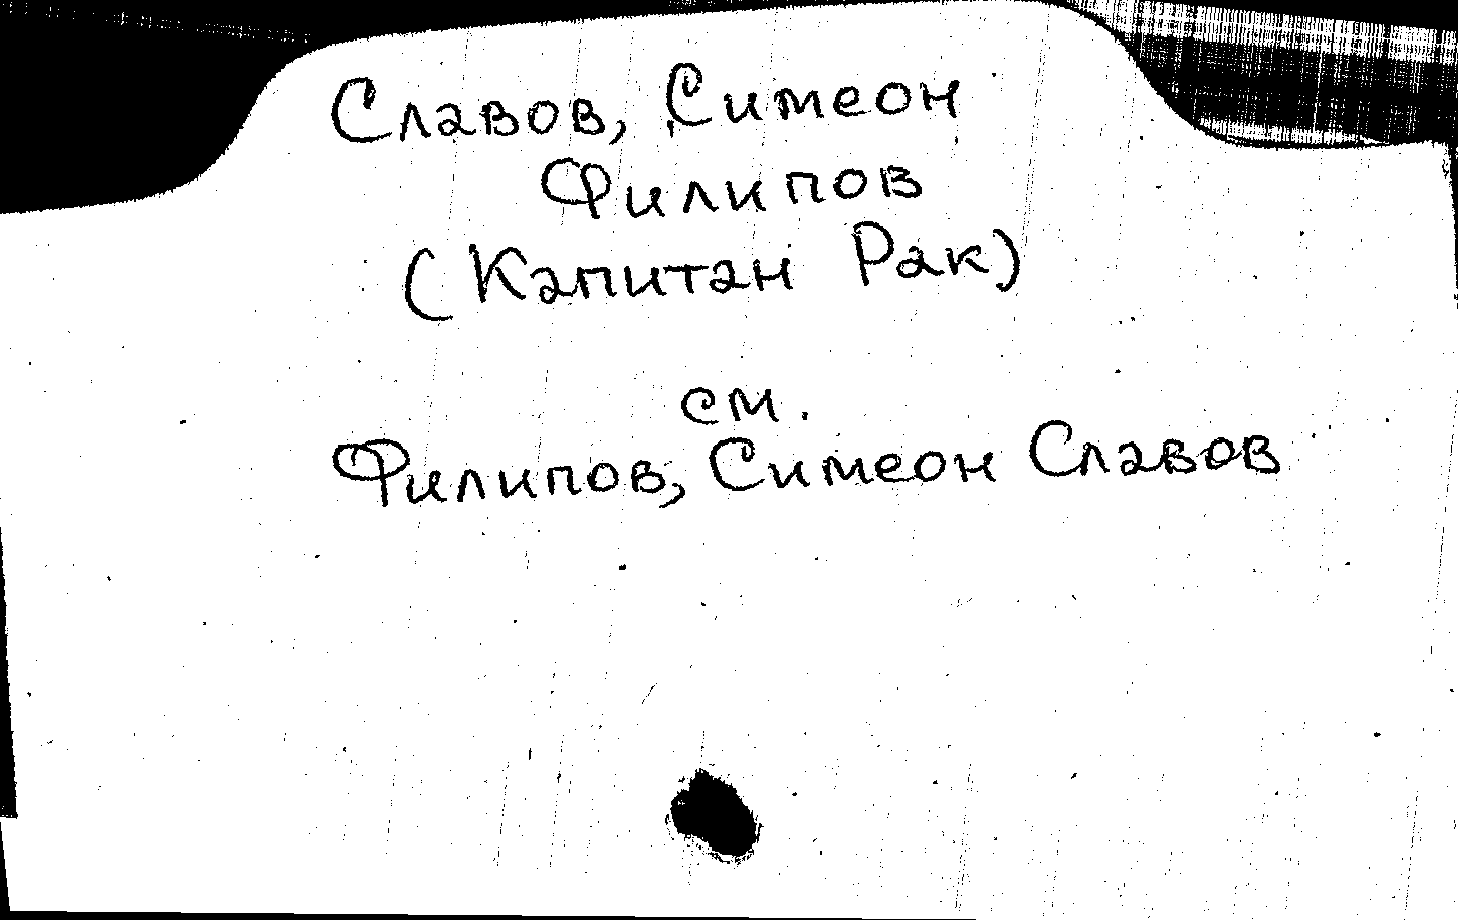 Славов, Симеон
Филипов
(Капитан Рак)
см.
Филипов, Симеон Славов